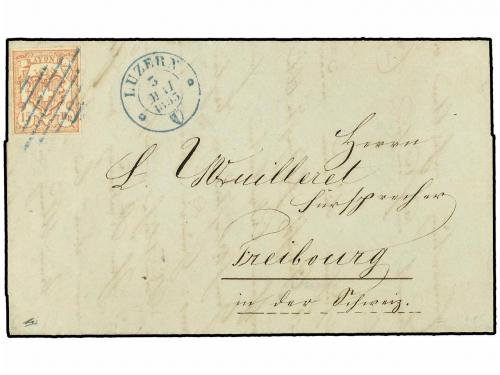 RAYON
LUZERN
3
MAI
1853
Herrn
L. Wuilleret
Fürsprecher
Freibourg
in der Schweiz.